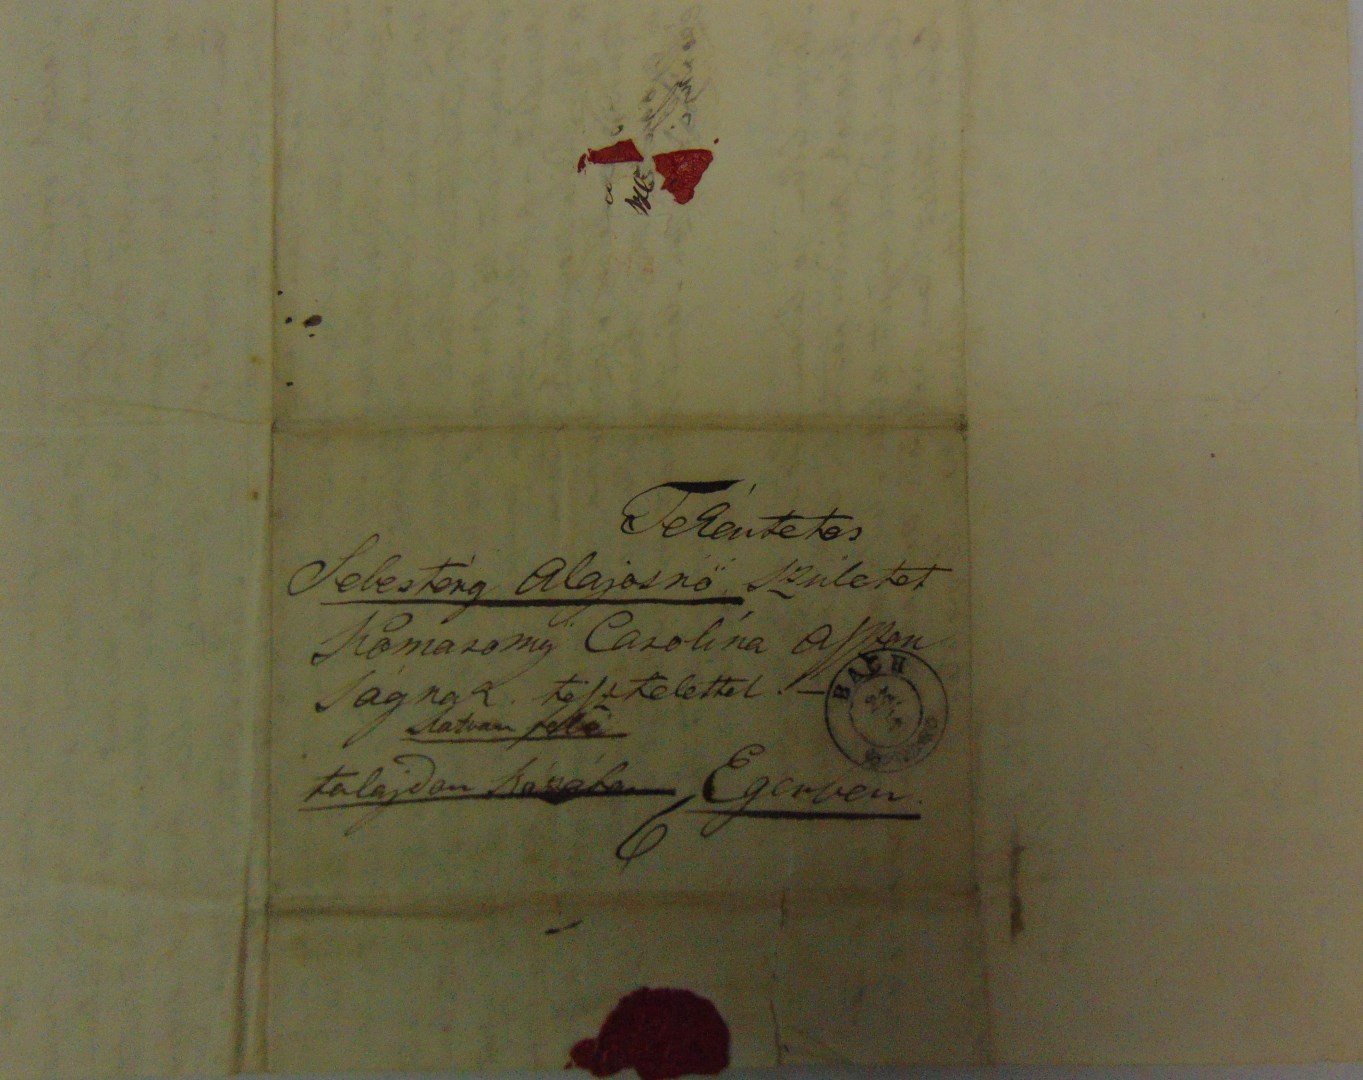 Tekéntetes
Sebestény Alajosnö született
Komaromy Carolina Asszon
ságnak tisztelettel. —
Hatvan
tulajdon házába Egerben.
BACH